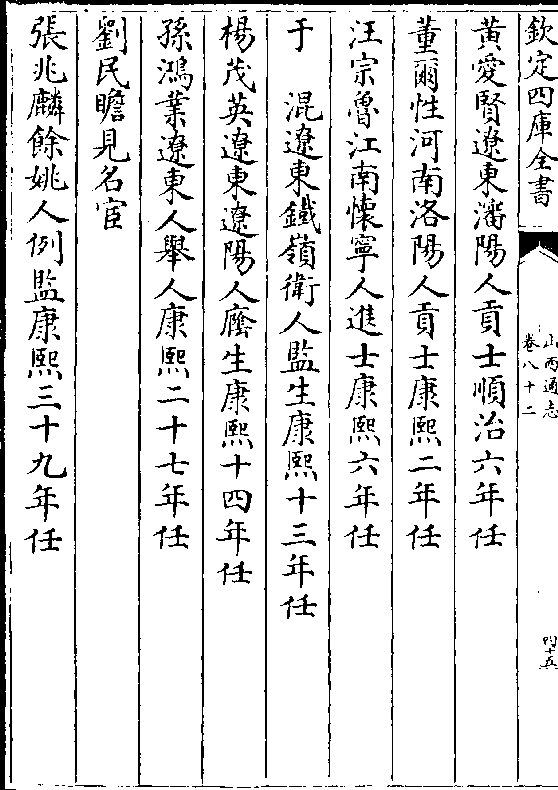 欽定四庫全書
山西通志
卷八十二
黄愛賢遼東瀋陽人貢士順治六年任
董爾性河南洛陽人貢士康熙二年任
汪宗魯江南懷寧人進士康熙六年任
于　混遼東鐵嶺衛人監生康熙十三年任
楊茂英遼東遼陽人廕生康熙十四年任
孫鴻業遼東人舉人康熙二十七年任
劉民瞻見名宦
張兆麟餘姚人例監康熙三十九年任